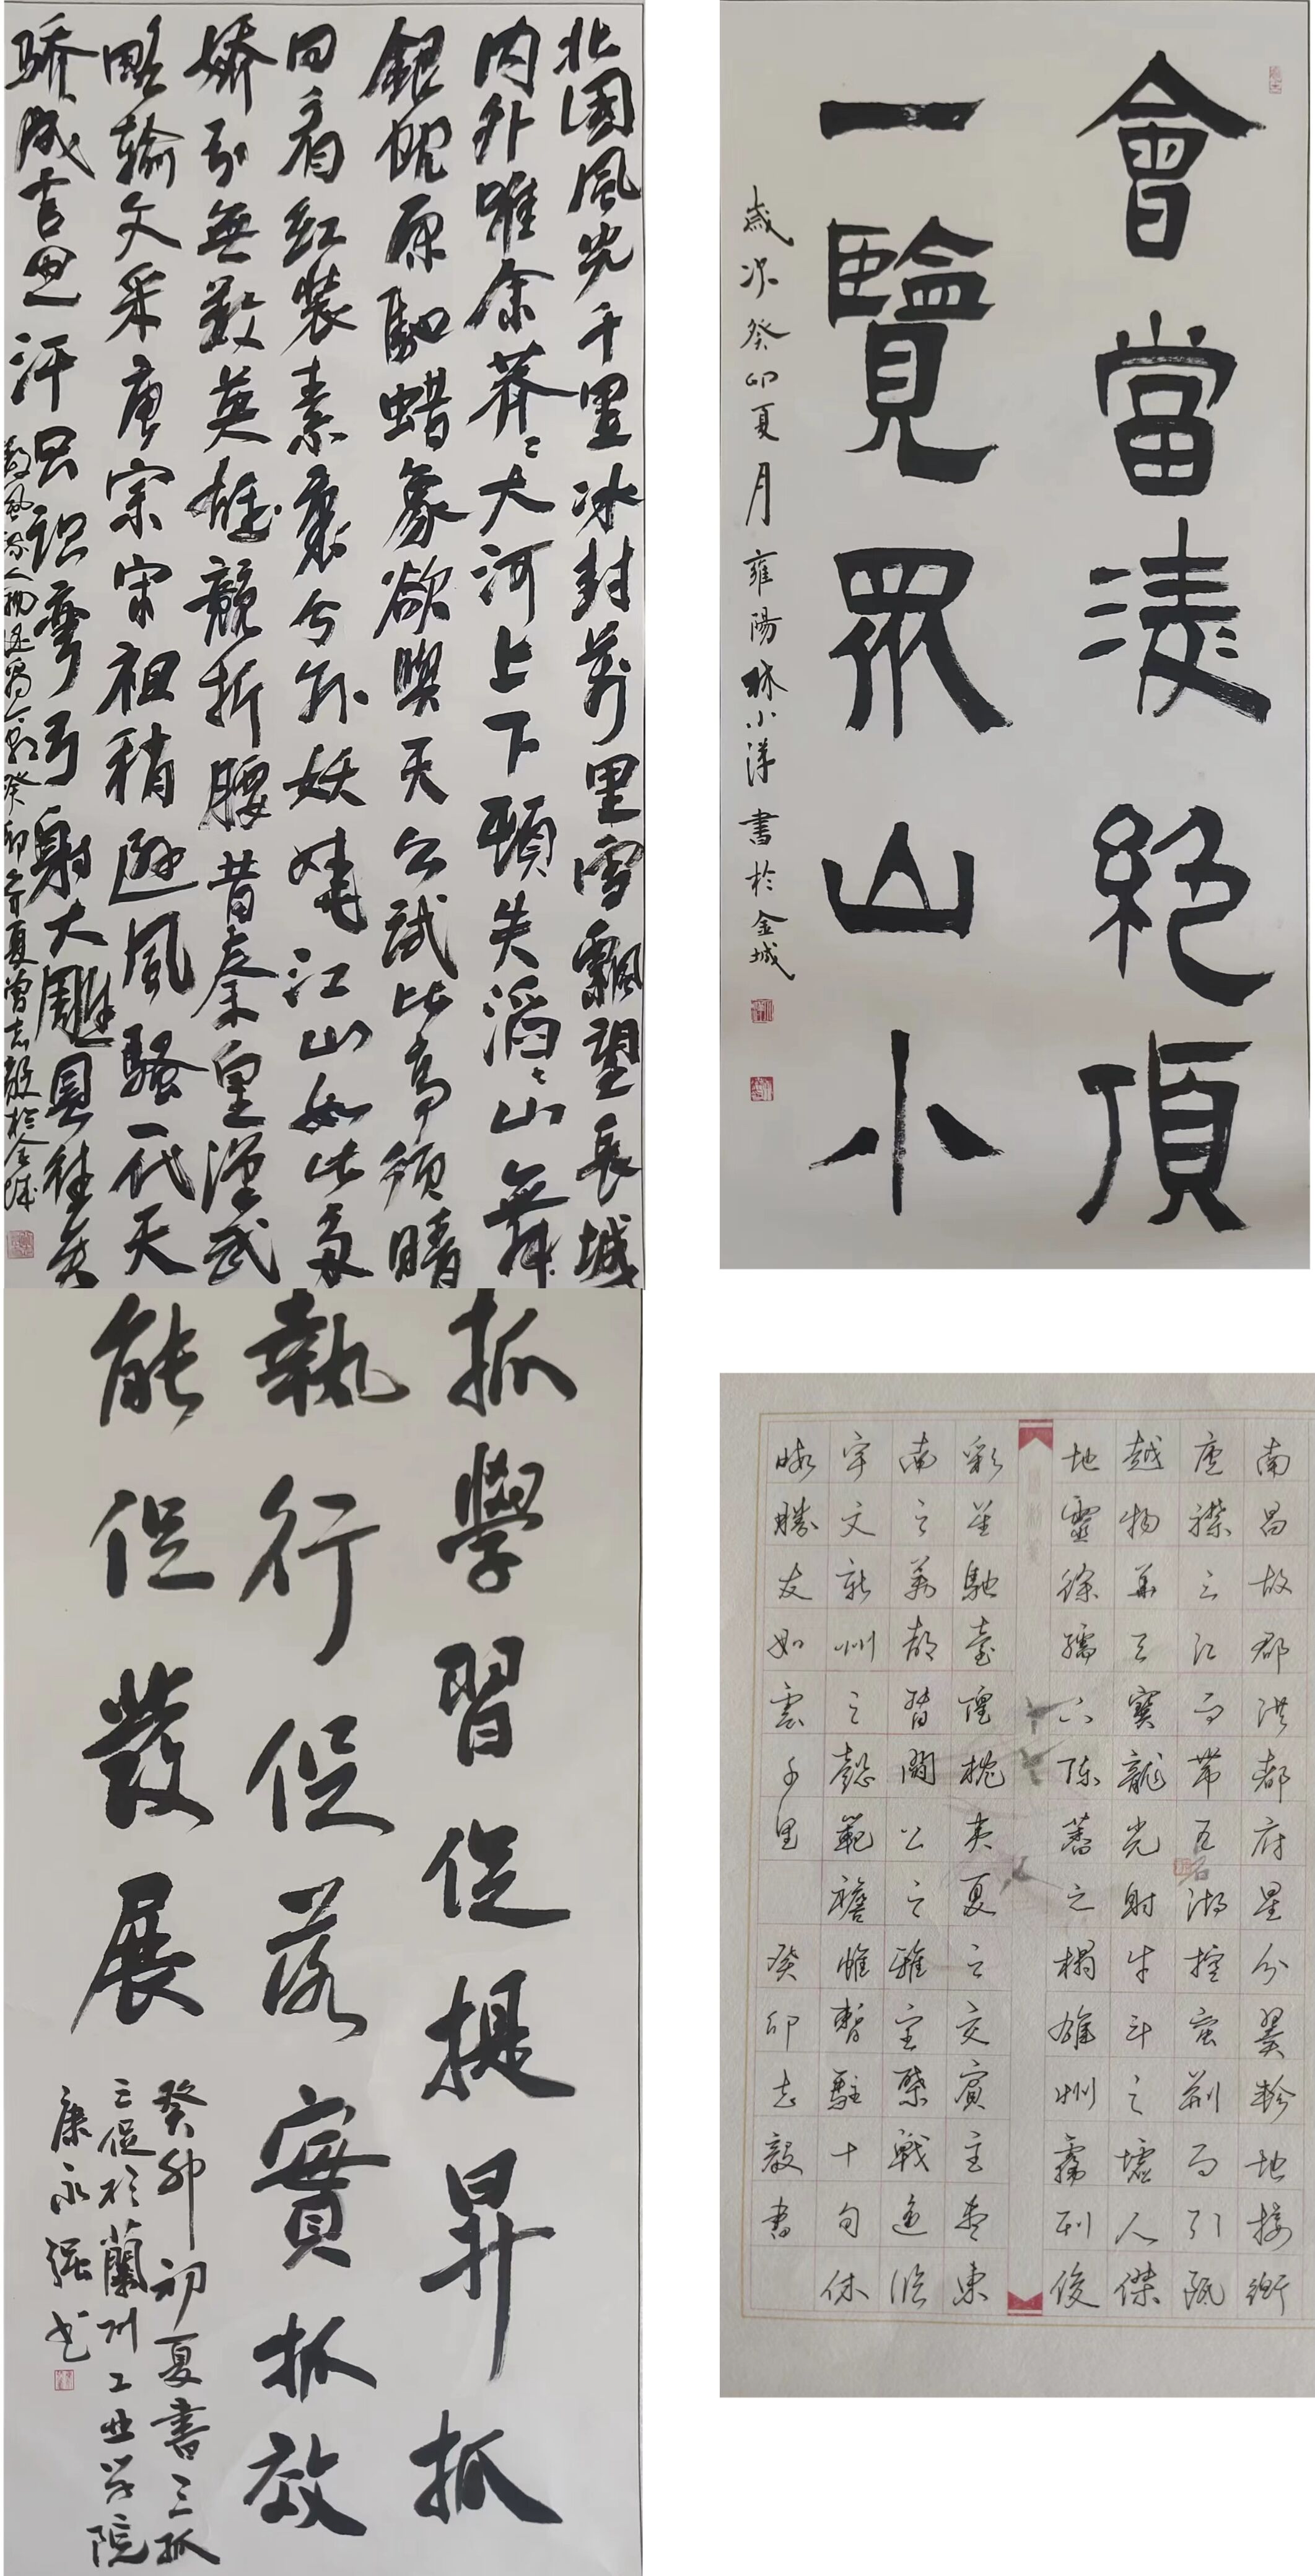 北國風光千里冰封萬里雪飄望長城
内外唯余莽〻大河上下頓失滔〻山舞
銀蛇原馳蜡象欲與天公試比高須晴
日看紅裝素裹分外妖嬈江山如此多
嬌引無數英雄競折腰昔秦皇漢武
略輸文采唐宗宋祖稍遜風騷一代天
驕成吉思汗只識彎弓射大雕俱往矣
數風流人物還看今朝癸卯年夏曾志毅於金城
會當淩絕頂
一覽眾山小
歲次癸卯夏月雍陽林小洋書於金城
抓學習促提昇抓
執行促落實抓效
能促發展
癸卯初夏書三抓
三促於蘭州工业学院
康永强书
南昌故郡洪都府星分翼軫地接衡
廬襟三江而帶五湖控蛮荆而引甌
越物華天寶龍光射牛斗之墟人傑
地靈徐孺下陈蕃之榻雄州霧列俊
彩星馳臺隍枕夷夏之交賓主盡東
南之美都督閻公之雅望棨戟遥临
宇文新州之懿範襜帷暫駐十旬休
暇勝友如雲千里
癸卯志毅書